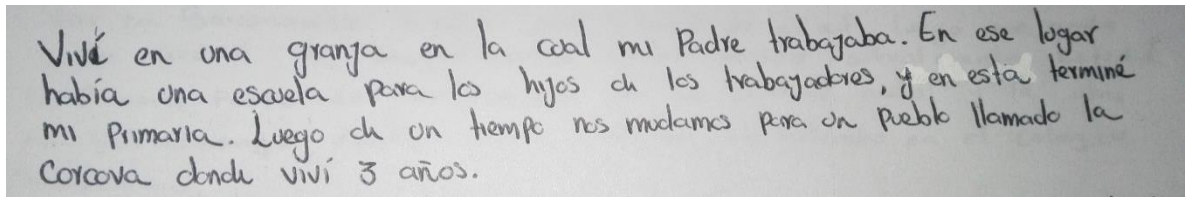 Viví en una granja en la cual mi Padre trabajaba. En ese lugar
había una escuela para los hijos de los trabajadores, y en esta terminé
mi Primaria. Luego de un tiempo nos mudamos para un Pueblo llamado la
Corcova donde viví 3 años.